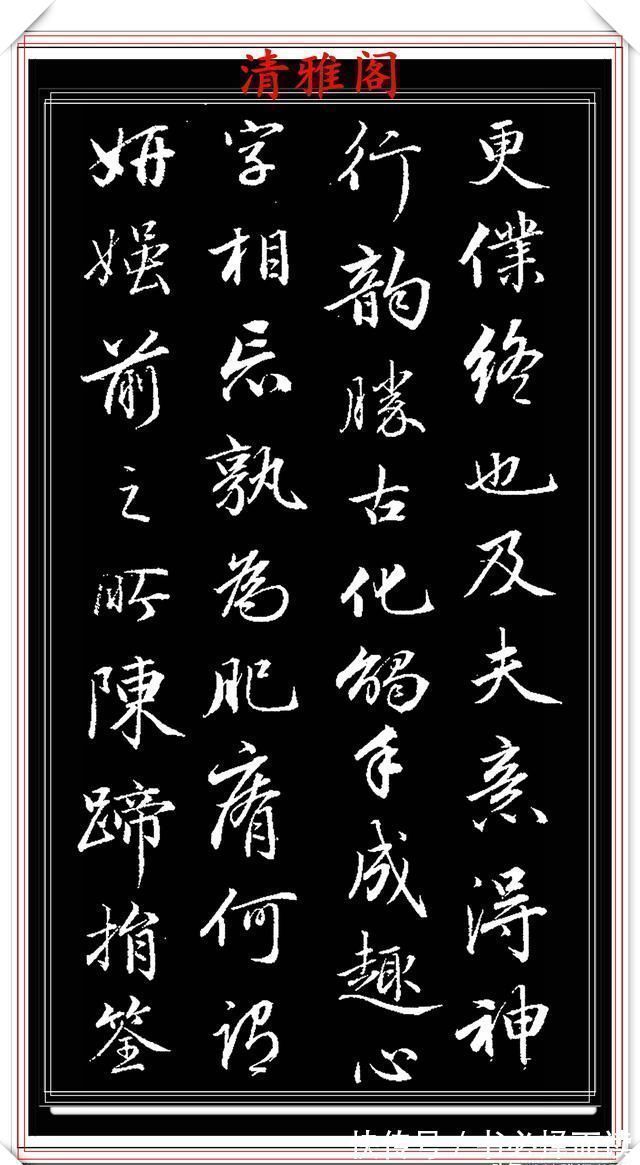 清雅阁
更僕終也及夫意得神
行韻勝古化觸手成趣心
字相忘孰為肥瘠何謂
妍媸前之所陳蹄捐筌
快传号 / 书必择而读